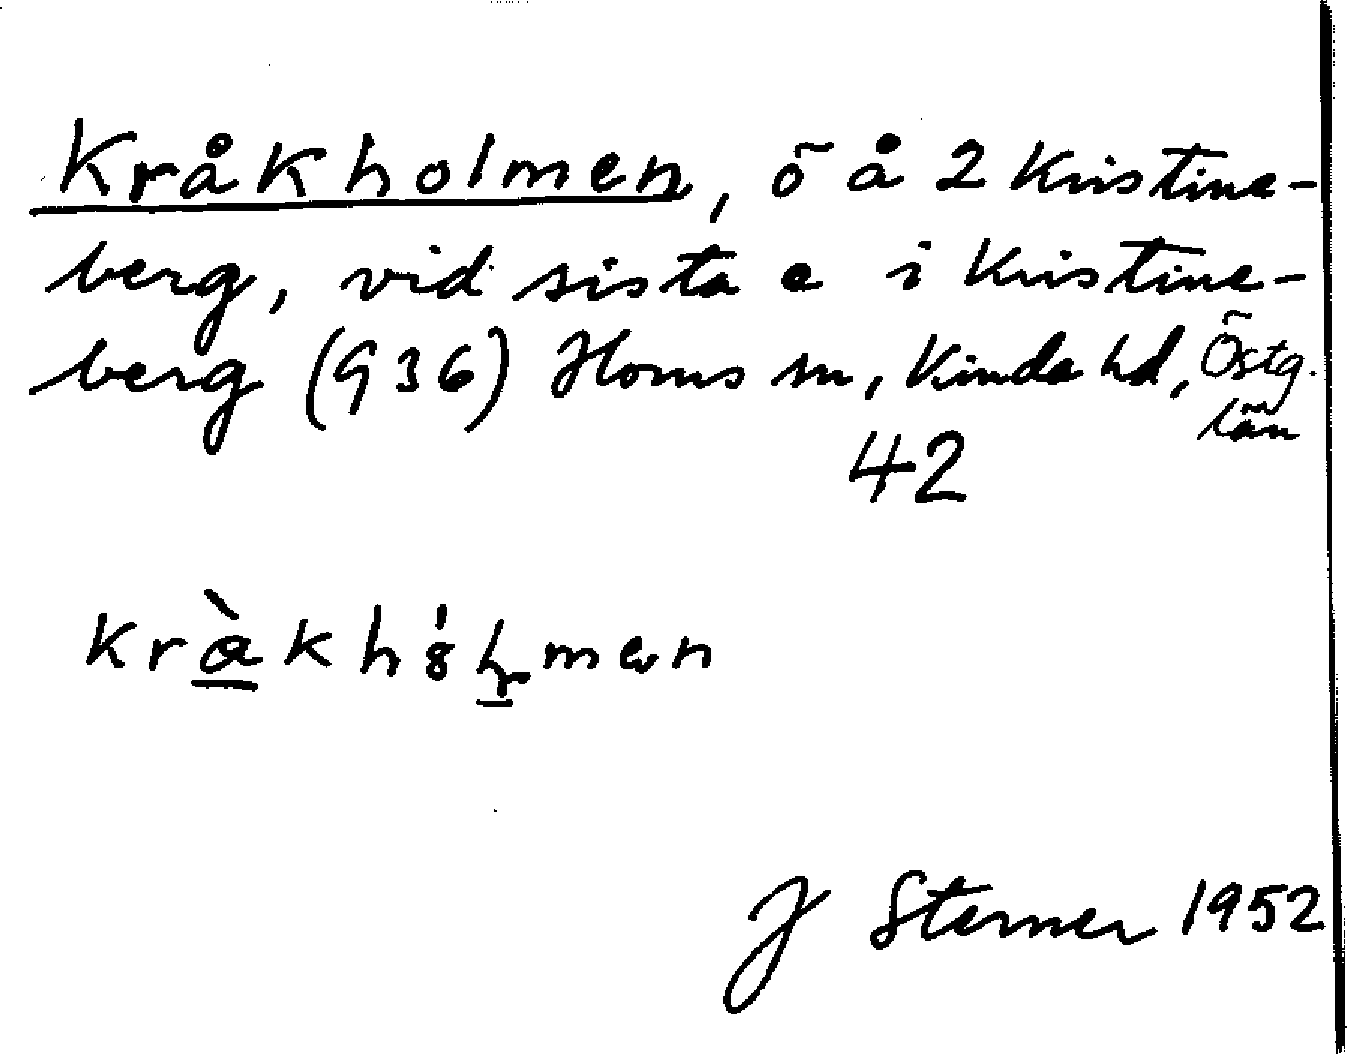 Kråkholmen, ö å 2 Kristine-
berg, vid sista e i Kristine-
berg (936) Horns sn, Kinda hd, Östg.
län
42
J Sterner 1952